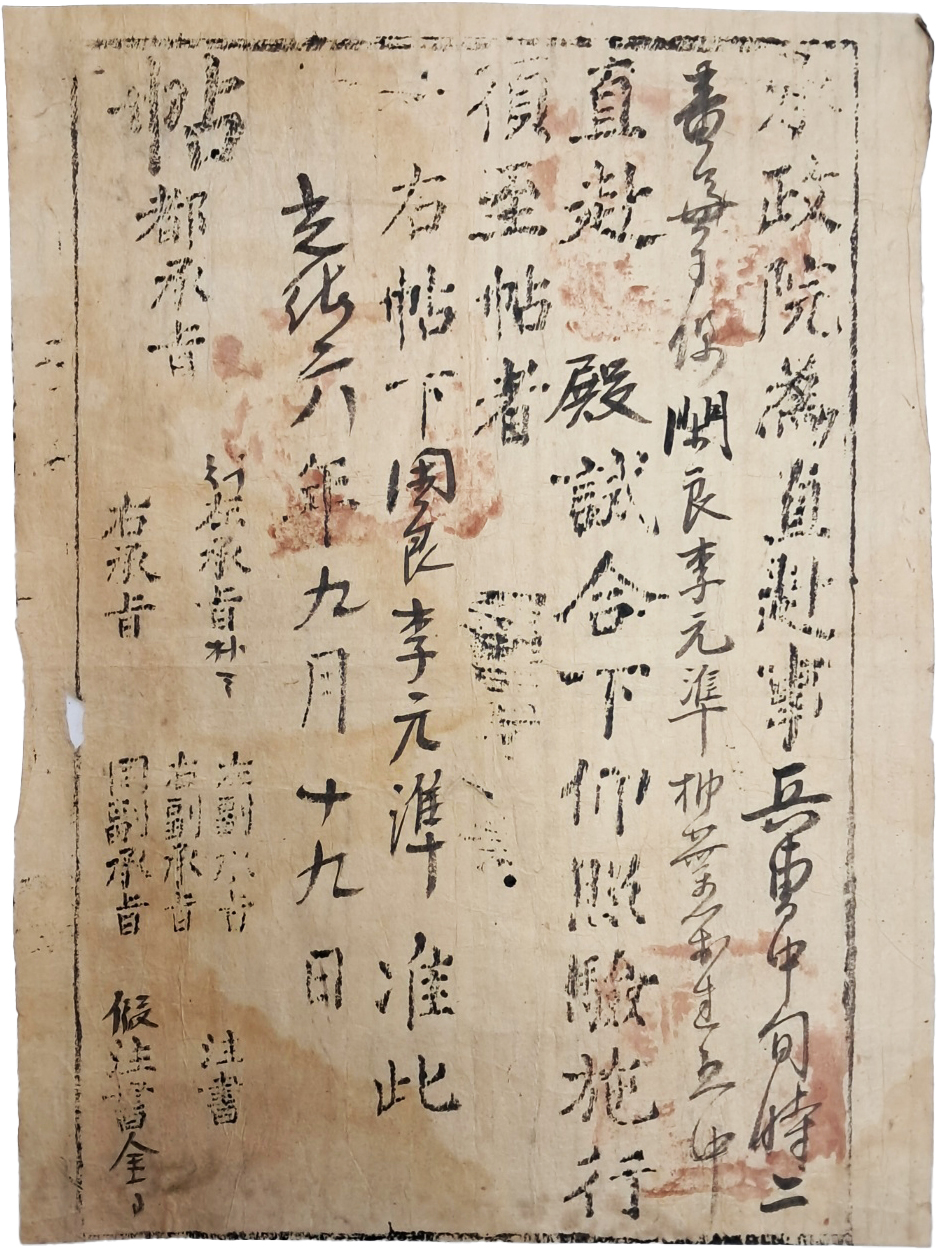 承政院為直赴事兵曹中旬時二
書無子保閑良李元準柳葉箭
直赴殿試合下仰照驗施行
須至帖者
右帖下閑良李元準准此
光緒六年九月十九日
帖
都承旨
行左承旨朴
右承旨
左副承旨
右副承旨
同副承旨
注書
假注書金